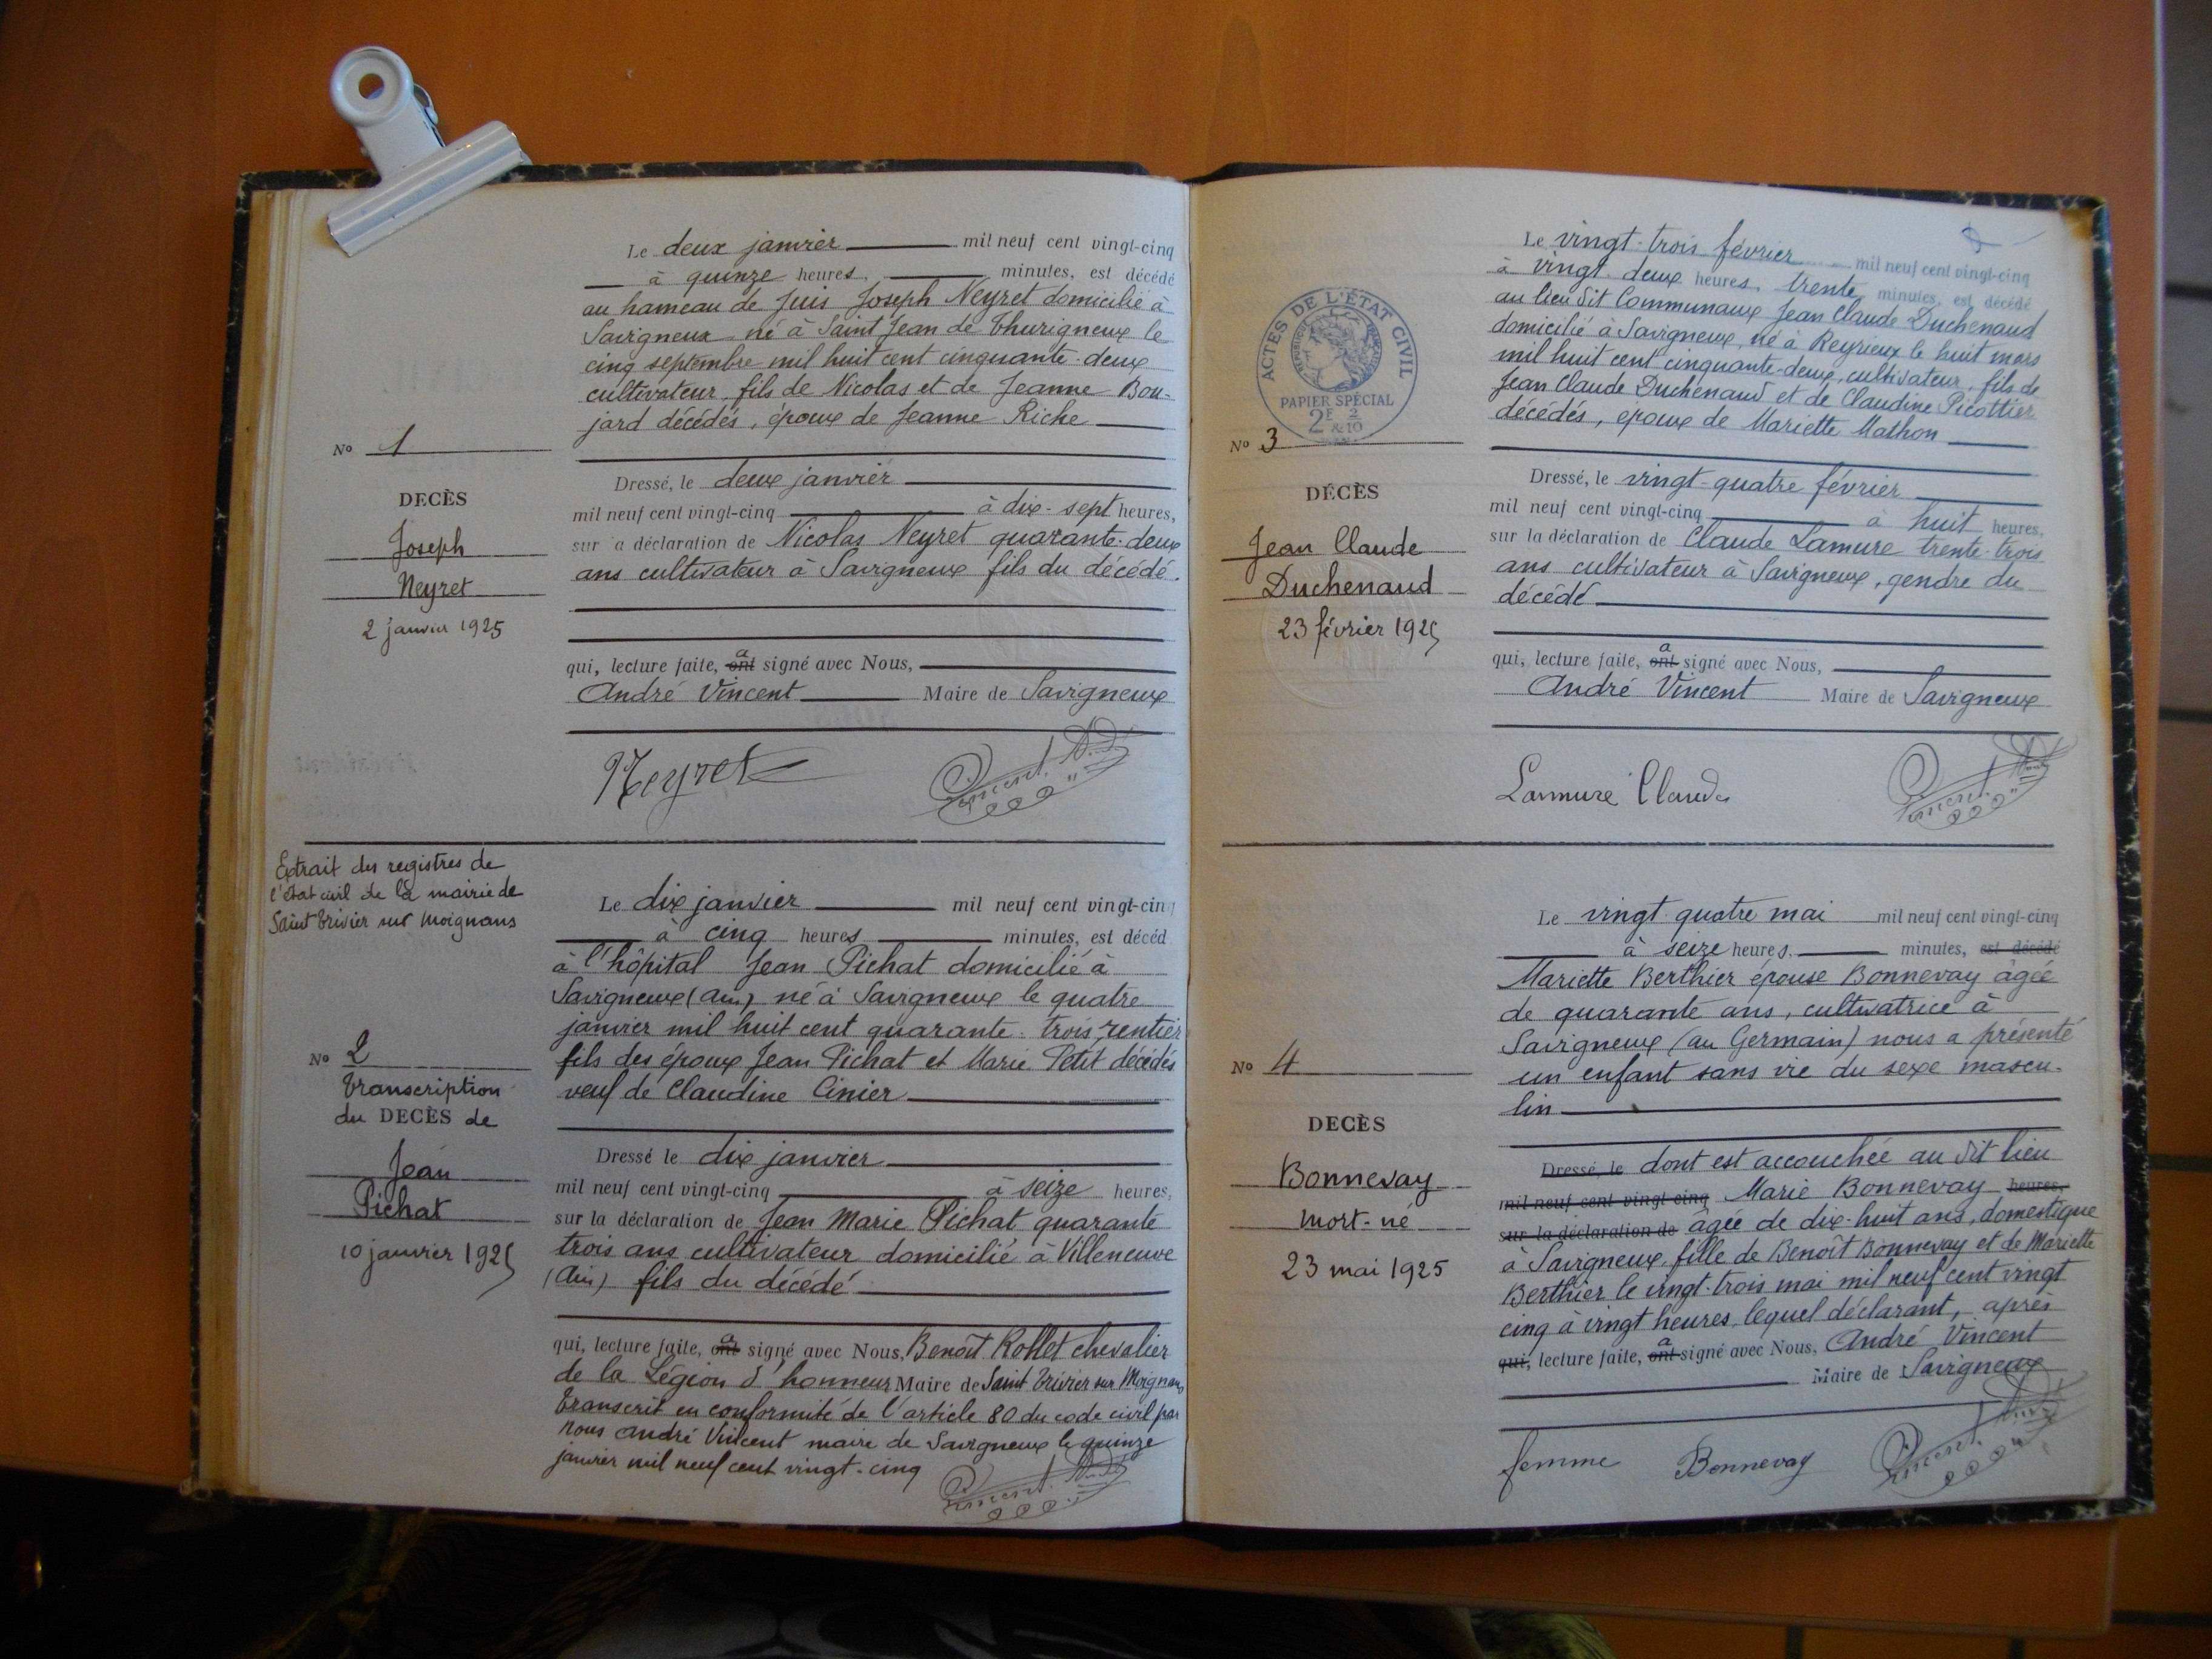 Le deux janvier mil neuf cent vingt-cinq
à quinze heures, minutes, est décédé
au hameau de Juis Joseph Neyret domicilié à
Savigneux né à Saint Jean de Thurigneux le
cinq septembre mil huit cent cinquante-deux
cultivateur, fils de Nicolas et de Jeanne Bou-
jard décédés, époux de Jeanne Riche
No 1
DECÈS
Joseph
Neyret
2 janvier 1925
Dressé, le deux janvier
mil neuf cent vingt-cinq à dix-sept heures,
sur a déclaration de Nicolas Neyret quarante-deux
ans cultivateur à Savigneux fils du décédé.
qui, lecture faite, ont a signé avec Nous,
André Vincent Maire de Savigneux
Neyret
Vincent
Extrait des registres de
l'état civil de la mairie de
Saint Trivier sur Moignans
No 2
Transcription
du DECÈS de
Jean
Pichat
10 janvier 1925
Le dix janvier mil neuf cent vingt-cin
à cinq heures minutes, est décéd
à l'hôpital Jean Pichat domicilié à
Savigneux (Ain) né à Savigneux le quatre
janvier mil huit cent quarante-trois, rentier
fils des époux Jean Pichat et Marie Petit décédés
veuf de Claudine Cinier
Dressé le dix janvier
mil neuf cent vingt-cinq à seize heures,
sur la déclaration de Jean Marie Pichat quarante
trois ans cultivateur domicilié à Villeneuve
(Ain) fils du décédé
qui, lecture faite, ont a signé avec Nous, Benoît Rollet chevalier
de la Légion d'honneur Maire de Saint Trivier sur Moignans
Transcrit en conformité de l'article 80 du code civil par
nous André Vincent maire de Savigneux le quinze
janvier mil neuf cent vingt-cinq
Vincent
ACTES DE L'ÉTAT CIVIL
PAPIER SPÉCIAL
2F 2
& 10
No 3
DÉCÈS
Jean Claude
Duchenaud
23 février 1925
Le vingt-trois février mil neuf cent vingt-cinq
à vingt-deux heures, trente minutes, est décédé
au lieu dit Communaux Jean Claude Duchenaud
domicilié à Savigneux, né à Reyrieux le huit mars
mil huit cent cinquante-deux, cultivateur, fils de
Jean Claude Duchenaud et de Claudine Picottier
décédés, époux de Mariette Mathon
Dressé, le vingt-quatre février
mil neuf cent vingt-cinq à huit heures,
sur la déclaration de Claude Lamure trente-trois
ans cultivateur à Savigneux, gendre du
décédé
qui, lecture faite, ont a signé avec Nous,
André Vincent Maire de Savigneux
Lamure Claude
Vincent
No 4
DECÈS
Bonnevay
mort-né
23 mai 1925
Le vingt quatre mai mil neuf cent vingt-cinq
à seize heures, minutes, est décédé
Mariette Berthier épouse Bonnevay âgée
de quarante ans, cultivatrice à
Savigneux (au Germain) nous a présenté
un enfant sans vie du sexe mascu-
lin
Dressé, le dont est accouchée au dit lieu
mil neuf cent vingt cinq Marie Bonnevay heures,
sur la déclaration de âgée de dix-huit ans, domestique
à Savigneux, fille de Benoît Bonnevay et de Mariette
Berthier le vingt-trois mai mil neuf cent vingt
cinq à vingt heures, lequel déclarant, après
qui, lecture faite, ont a signé avec Nous, André Vincent
Maire de Savigneux
femme Bonnevay
Vincent